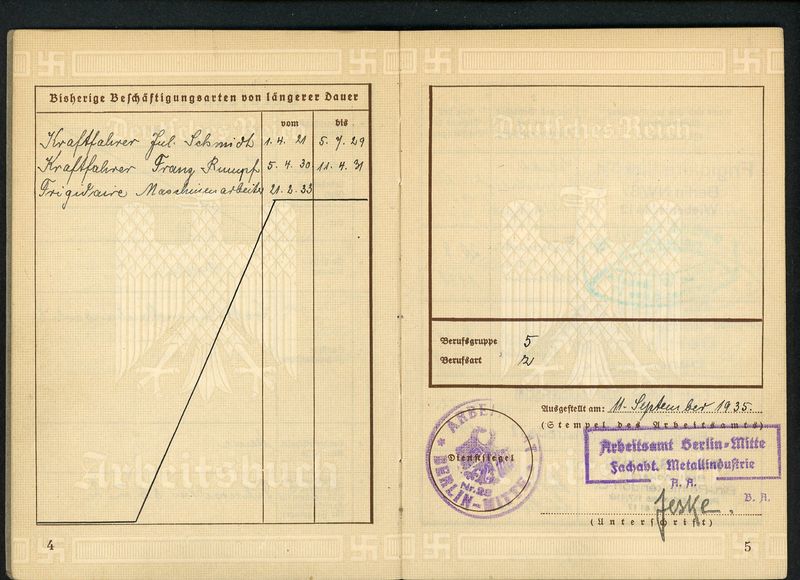 Bisherige Beschäftigungsarten von längerer Dauer
vom bis
Kraftfahrer Jul. Schmidt 1.4.21 5.7.29
Kraftfahrer Franz Rumpf 5.4.30 11.4.31
Frigidaire Maschinenarbeiter 21.2.33
Deutsches Reich
Arbeitsbuch
4
Deutsches Reich
Berufsgruppe 5
Berufsart 2
Ausgestellt am: 11. September 1935.
(Stempel des Arbeitsamts)
Arbeitsamt Berlin-Mitte
Fachabt. Metallindustrie
A. A.
B. A.
Jeske.
(Unterschrift)
ARBEITSAMT
Dienstsiegel
Nr. 28
BERLIN-MITTE
5